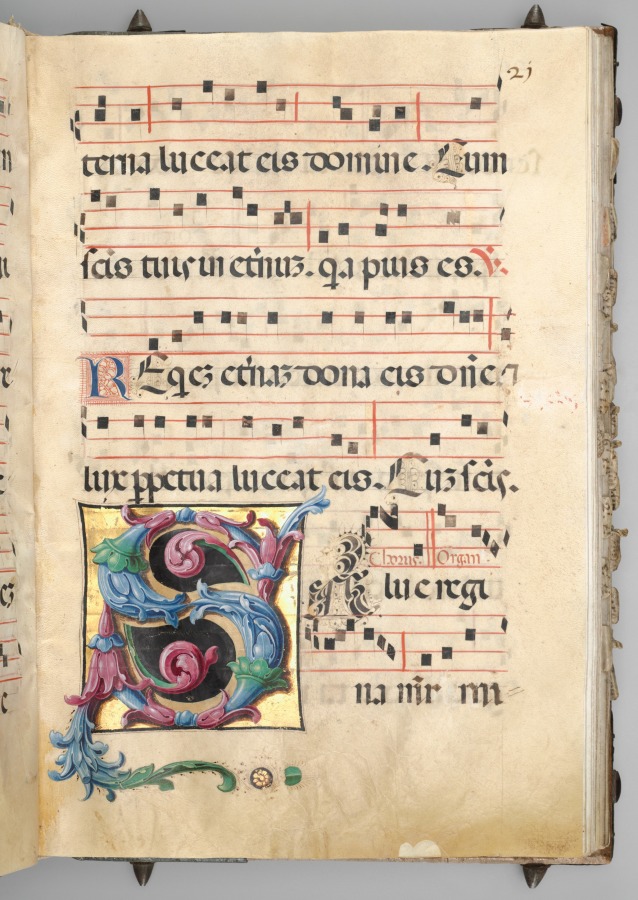 21
terna luceat eis domine. Cum
scis tuis in etnuz. qa puis es. V.
REqez etnaz dona eis dne et
lux ppetua luceat eis. Cuz scis.
Chorus. Organ.
lue regi
na mir mi=